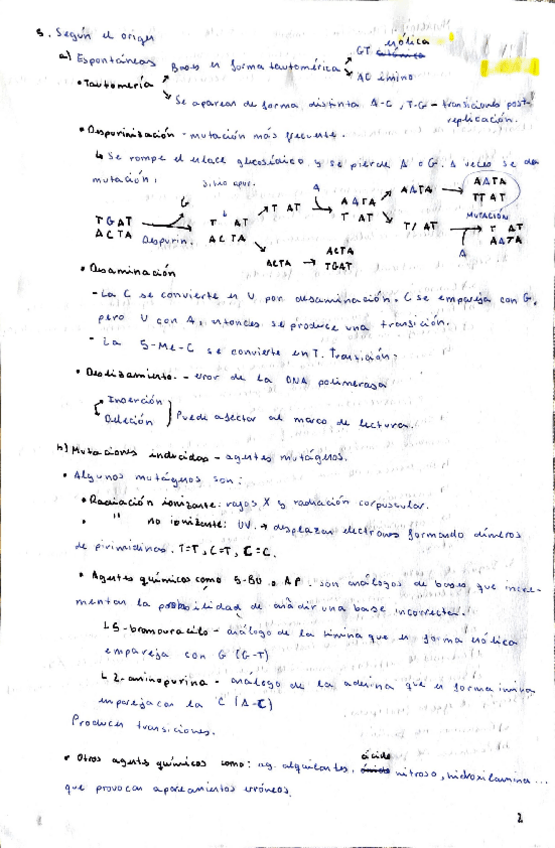 5. Según el origen
enólica
a) Espontáneas Bases en forma tautomérica GT
AC imino
• Tautomería
Se aparean de forma distinta A-C, T-G - transiciones post-
replicación.
• Despurinización - mutación más frecuente.
↳ Se rompe el enlace glucosídico y se pierde A o G. A veces se da
mutación:
Sitio apur.
G A AATA AATA
TTAT
T AT AATA
T AT
TGAT T AT MUTACIÓN
ACTA Despurin. ACTA T/ AT T AT
AATA
ACTA → ACTA
TGAT A
• Desaminación
- La C se convierte en U por desaminación. C se empareja con G,
pero U con A, entonces se produce una transición.
- La 5-Me-C se convierte en T. Transición.
• Deslizamiento. - error de la DNA polimerasa
Inserción
Deleción } Puede afectar al marco de lectura.
b) Mutaciones inducidas - agentes mutágenos.
• Algunos mutágenos son:
• Radiación ionizante: rayos X y radiación corpuscular.
• " no ionizante: UV. → desplazan electrones formando dímeros
de pirimidinas. T=T, C=T, C=C.
• Agentes químicos como 5-BU o AP. son análogos de bases que incre-
mentan la probabilidad de añadir una base incorrecta.
↳ 5-bromouracilo - análogo de la timina que en forma enólica
empareja con G (G-T)
↳ 2-aminopurina - análogo de la adenina que en forma imina
empareja con la C (A-C)
Producen transiciones.
• Otros agentes químicos como: ag. alquilantes, ácido nitroso, hidroxilamina...
que provocan apareamientos erróneos.
2